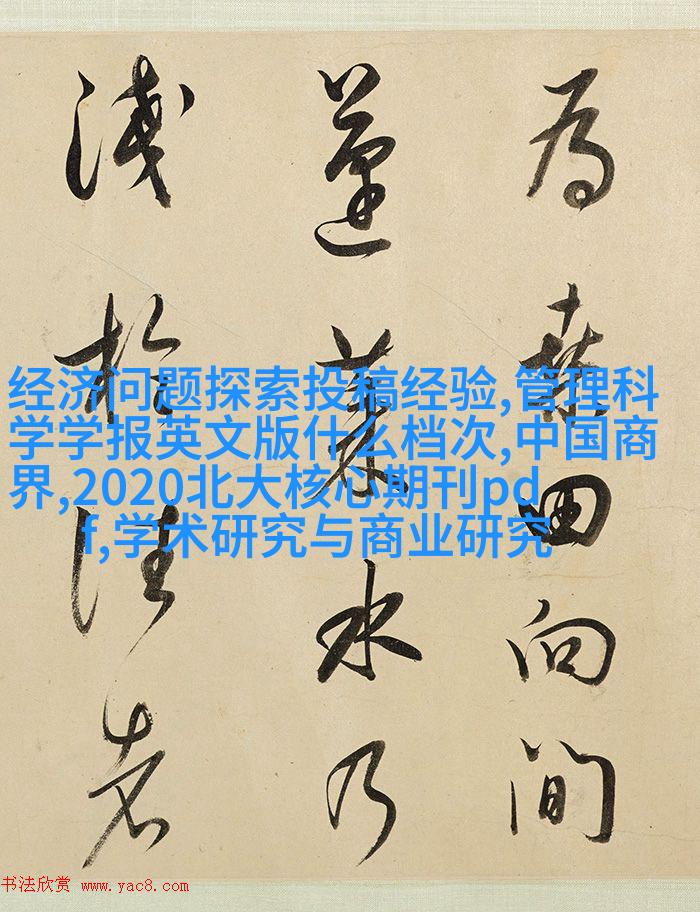 為桑田向間
蓬萊水乃
淺於往者
经济问题探索投稿经验,管理科
学学报英文版什么档次,中国商
界,2020北大核心期刊pd
f,学术研究与商业研究
书法欣赏 www.yac8.com